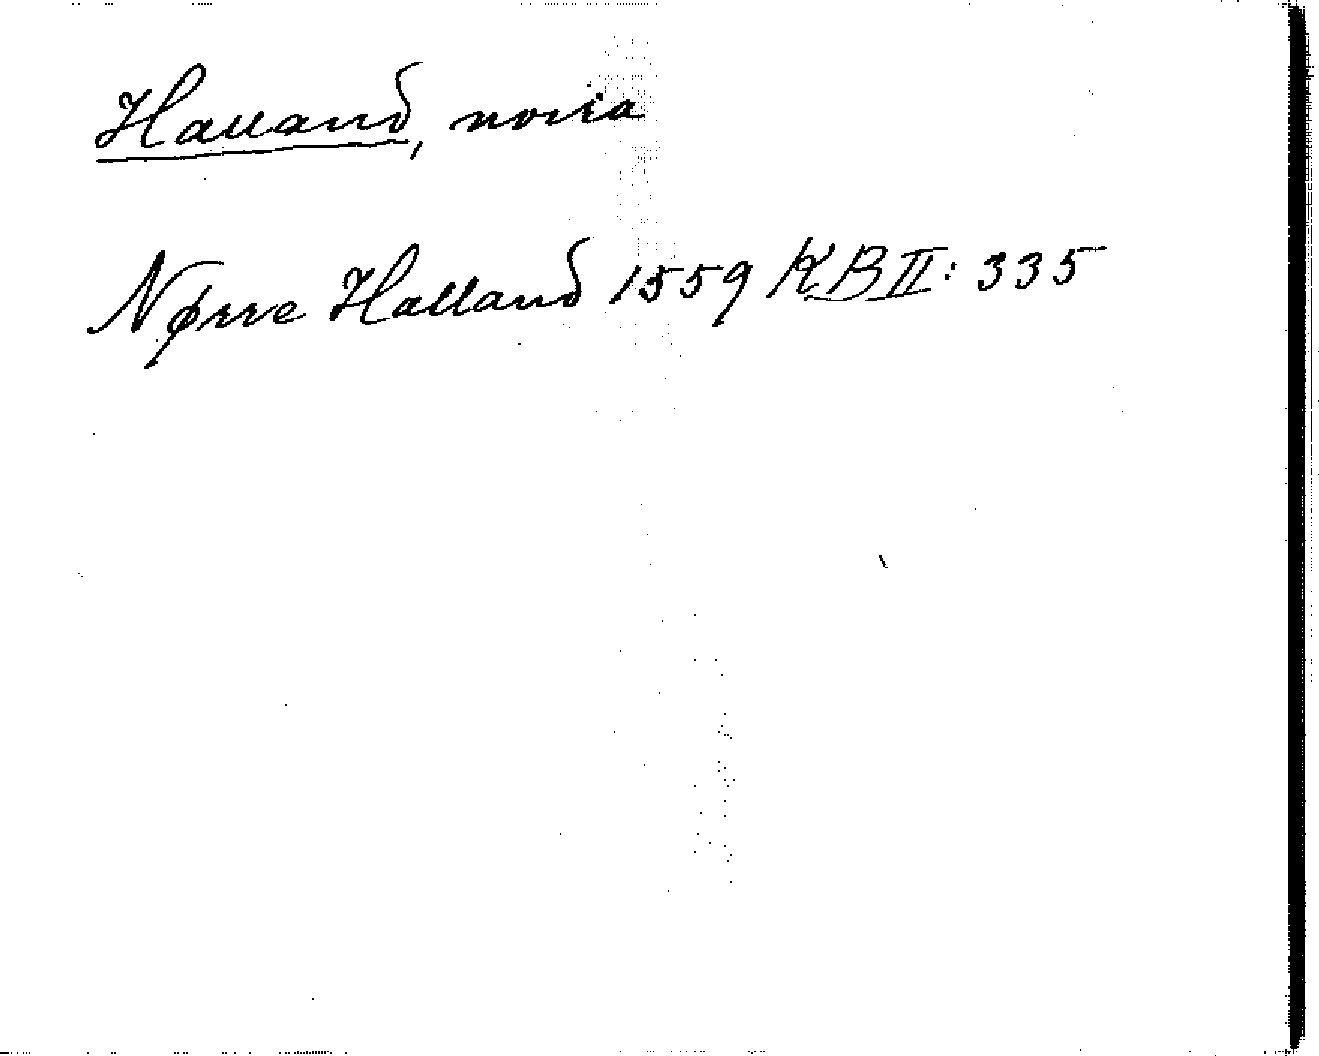 Halland, norra
Nørre Halland 1559 KB II: 335